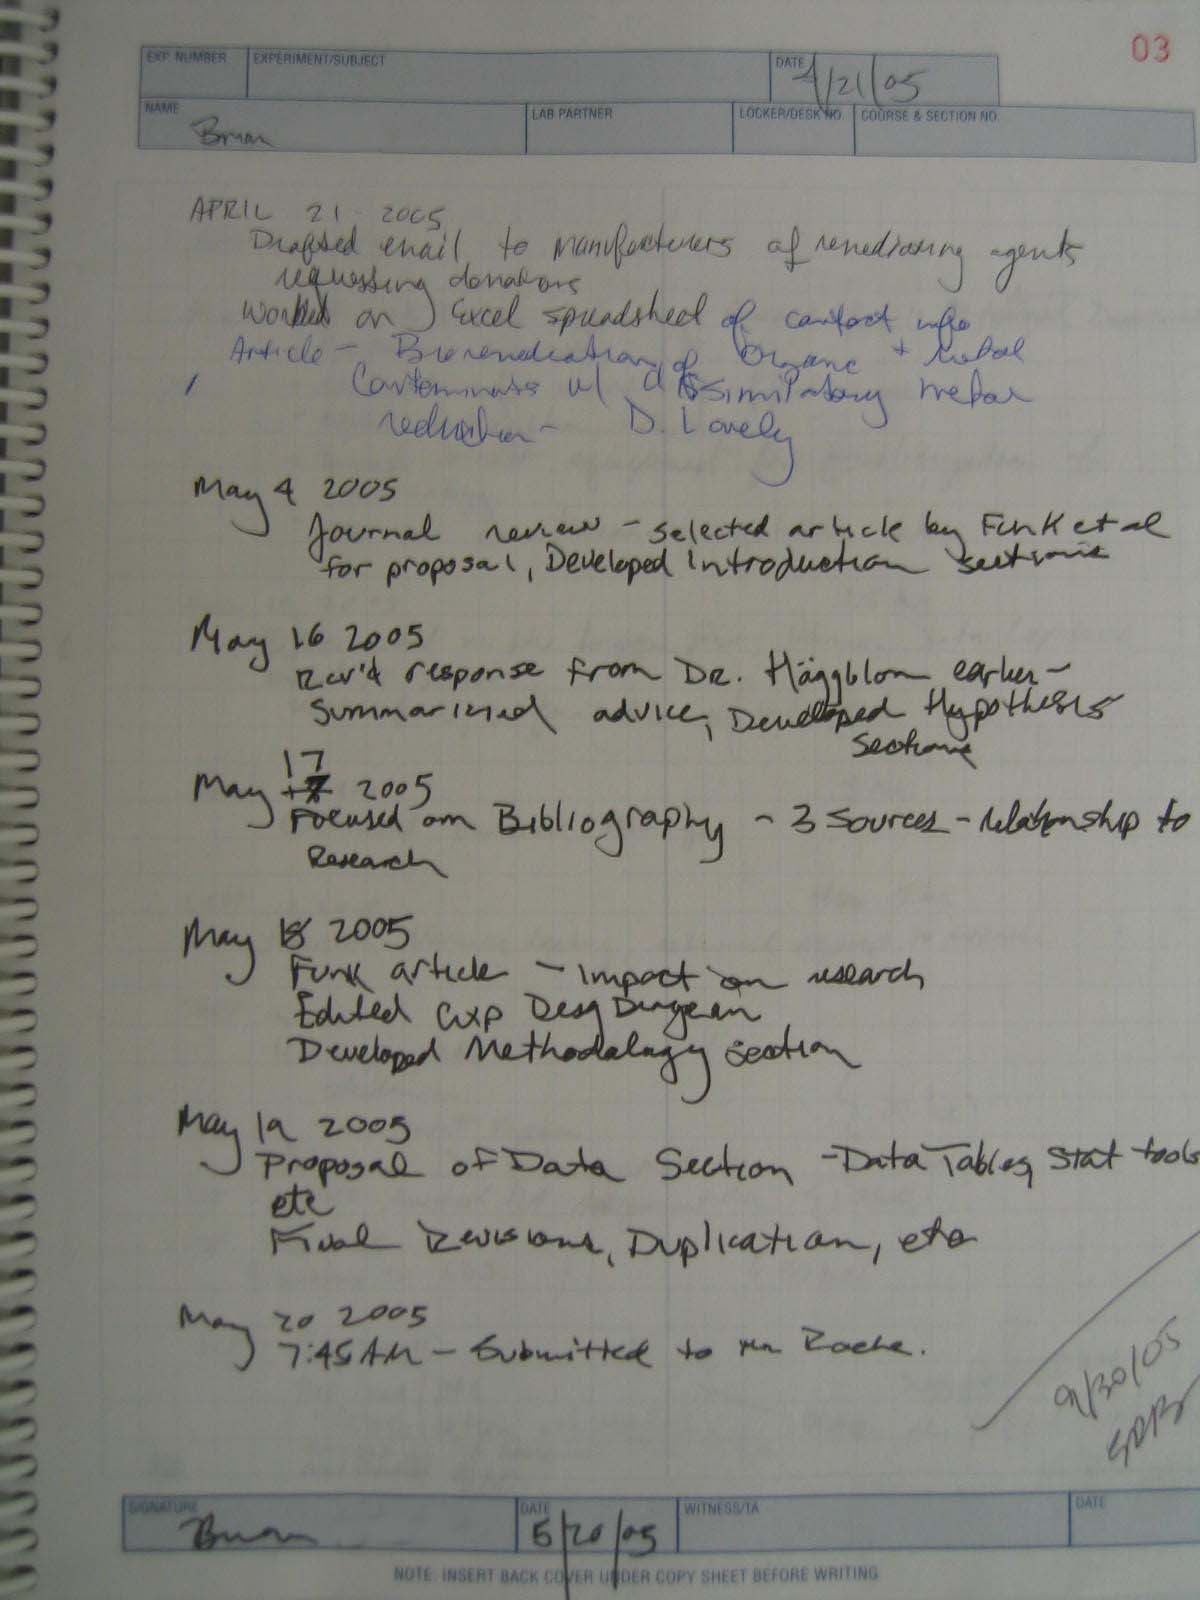 03
EXP. NUMBER EXPERIMENT/SUBJECT DATE 4/21/05
NAME Brian LAB PARTNER LOCKER/DESK NO. COURSE & SECTION NO.
APRIL 21 2005
Drafted email to manufacturers of remediating agents
requesting donations
Worked on Excel spreadsheet of contact info
Article - Bioremediation of Organic + Metal
Contaminants w/ dissimilatory metal
reduction - D. Lovely
May 4 2005
Journal review - selected article by Funk et al
for proposal, Developed Introduction sections
May 16 2005
Rcv'd response from Dr. Häggblom earlier -
summarized advice, Developed Hypothesis
sections
May 17 2005
Focused on Bibliography - 3 sources - relationship to
Research
May 18 2005
Funk article - impact on research
Edited Exp Desg Diagram
Developed Methodology section
May 19 2005
Proposal of Data Section - Data Tables, Stat tools
etc
Final Revisions, Duplication, etc
May 20 2005
7:45 AM - Submitted to Mr Roche.
9/30/05
SIGNATURE Brian DATE 5/20/05 WITNESS/TA DATE
NOTE: INSERT BACK COVER UNDER COPY SHEET BEFORE WRITING